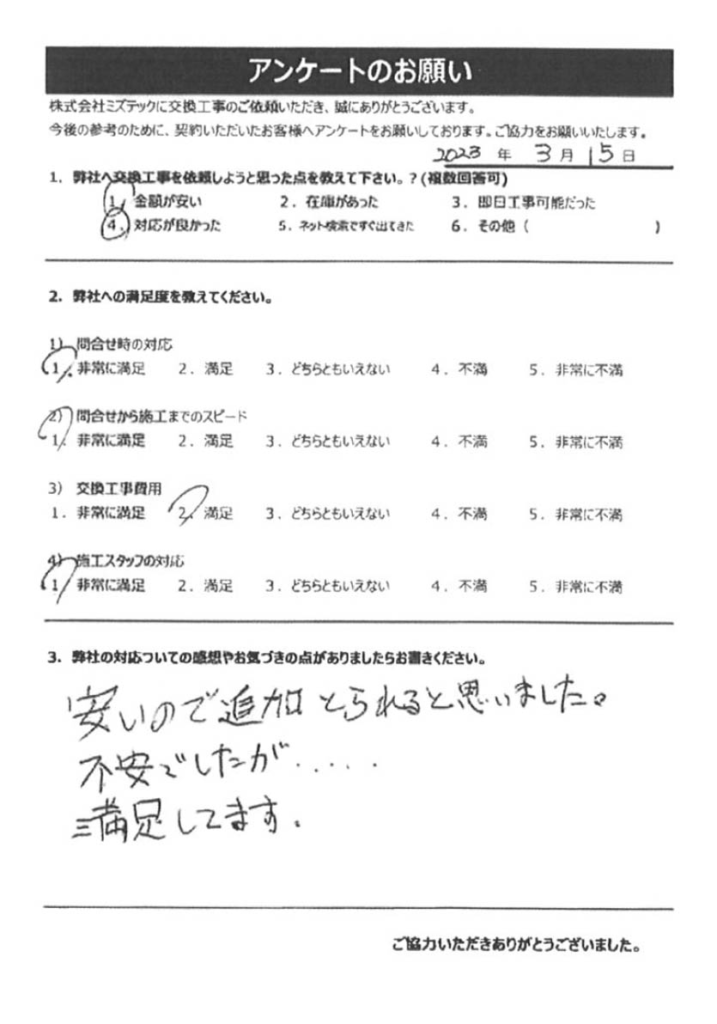 アンケートのお願い
株式会社ミズテックに交換工事のご依頼いただき、誠にありがとうございます。
今後の参考のために、契約いただいたお客様へアンケートをお願いしております。ご協力をお願いいたします。
2023 年 3 月 15 日
1. 弊社へ交換工事を依頼しようと思った点を教えて下さい。?(複数回答可)
1. 金額が安い 2. 在庫があった 3. 即日工事可能だった
4. 対応が良かった 5. ネット検索ですぐ出てきた 6. その他 ( )
2. 弊社への満足度を教えてください。
1) 問合せ時の対応
1. 非常に満足 2. 満足 3. どちらともいえない 4. 不満 5. 非常に不満
2) 問合せから施工までのスピード
1. 非常に満足 2. 満足 3. どちらともいえない 4. 不満 5. 非常に不満
3) 交換工事費用
1. 非常に満足 2. 満足 3. どちらともいえない 4. 不満 5. 非常に不満
4) 施工スタッフの対応
1. 非常に満足 2. 満足 3. どちらともいえない 4. 不満 5. 非常に不満
3. 弊社の対応ついての感想やお気づきの点がありましたらお書きください。
安いので追加とられると思いました。
不安でしたが.....
満足してます。
ご協力いただきありがとうございました。